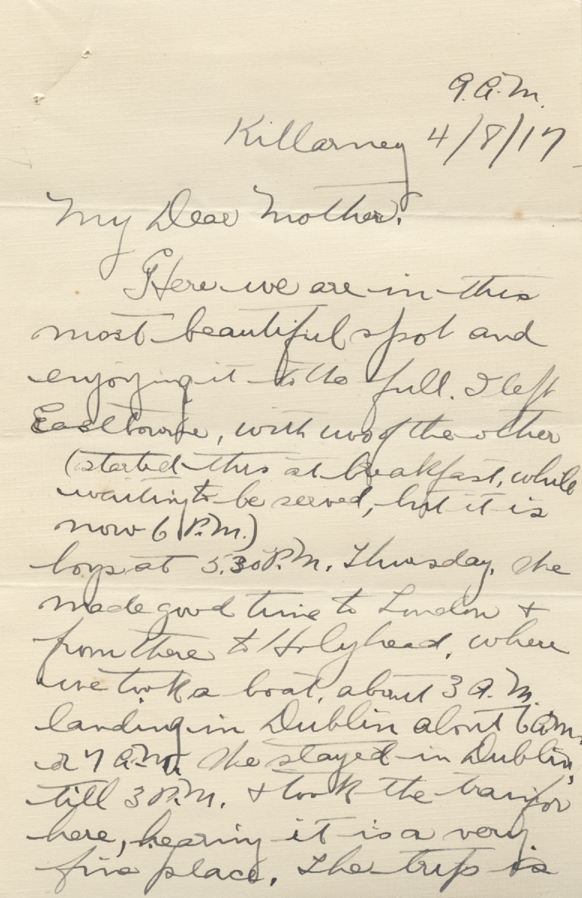 9 A.M.
Killarney 4/8/17
My Dear Mother,
Here we are in this
most beautiful spot and
enjoying it to the full. I left
Eastbourne, with two of the other
(started this at breakfast, while
waiting to be served, but it is
now 6 P.M.)
boys at 5.30 P.M. Thursday. We
made good time to London +
from there to Holyhead, where
we took a boat, about 3 A.M.
landing in Dublin about 6 a.m.
or 7 A.M. We stayed in Dublin
till 3 P.M. + took the train for
here, hearing it is a very
fine place. The trip is